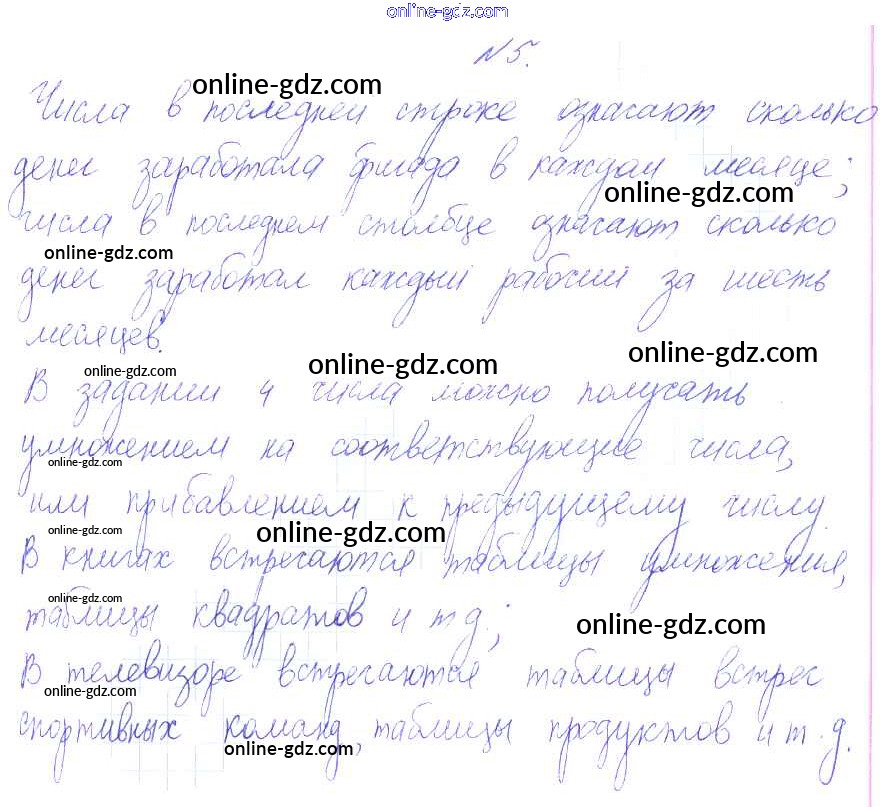 online-gdz.com
№5.
online-gdz.com
Числа в последней строке означают сколько
денег заработала бригада в каждом месяце;
online-gdz.com
числа в последнем столбце означают сколько
online-gdz.com
денег заработал каждый рабочий за шесть
месяцев.
online-gdz.com online-gdz.com online-gdz.com
В задании 4 числа можно получать
умножением на соответствующие числа,
online-gdz.com
или прибавлением к предыдущему числу.
online-gdz.com online-gdz.com
В книгах встречаются таблицы умножения,
online-gdz.com
таблицы квадратов и т д;
online-gdz.com
В телевизоре встречаются таблицы встреч
online-gdz.com
спортивных команд, таблицы продуктов и т.д.
online-gdz.com